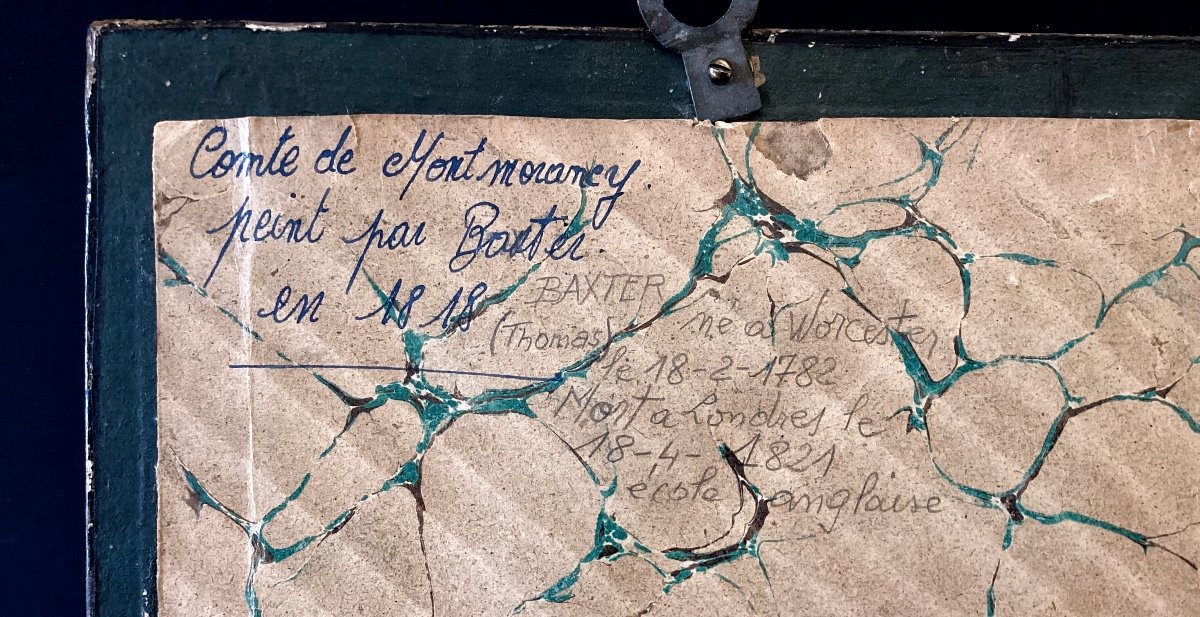 Comte de Montmorancy
peint par Baxter.
en 1818
BAXTER
(Thomas) né a Worcester
le 18-2-1782
Mort a Londres le
18-4-1821
école anglaise